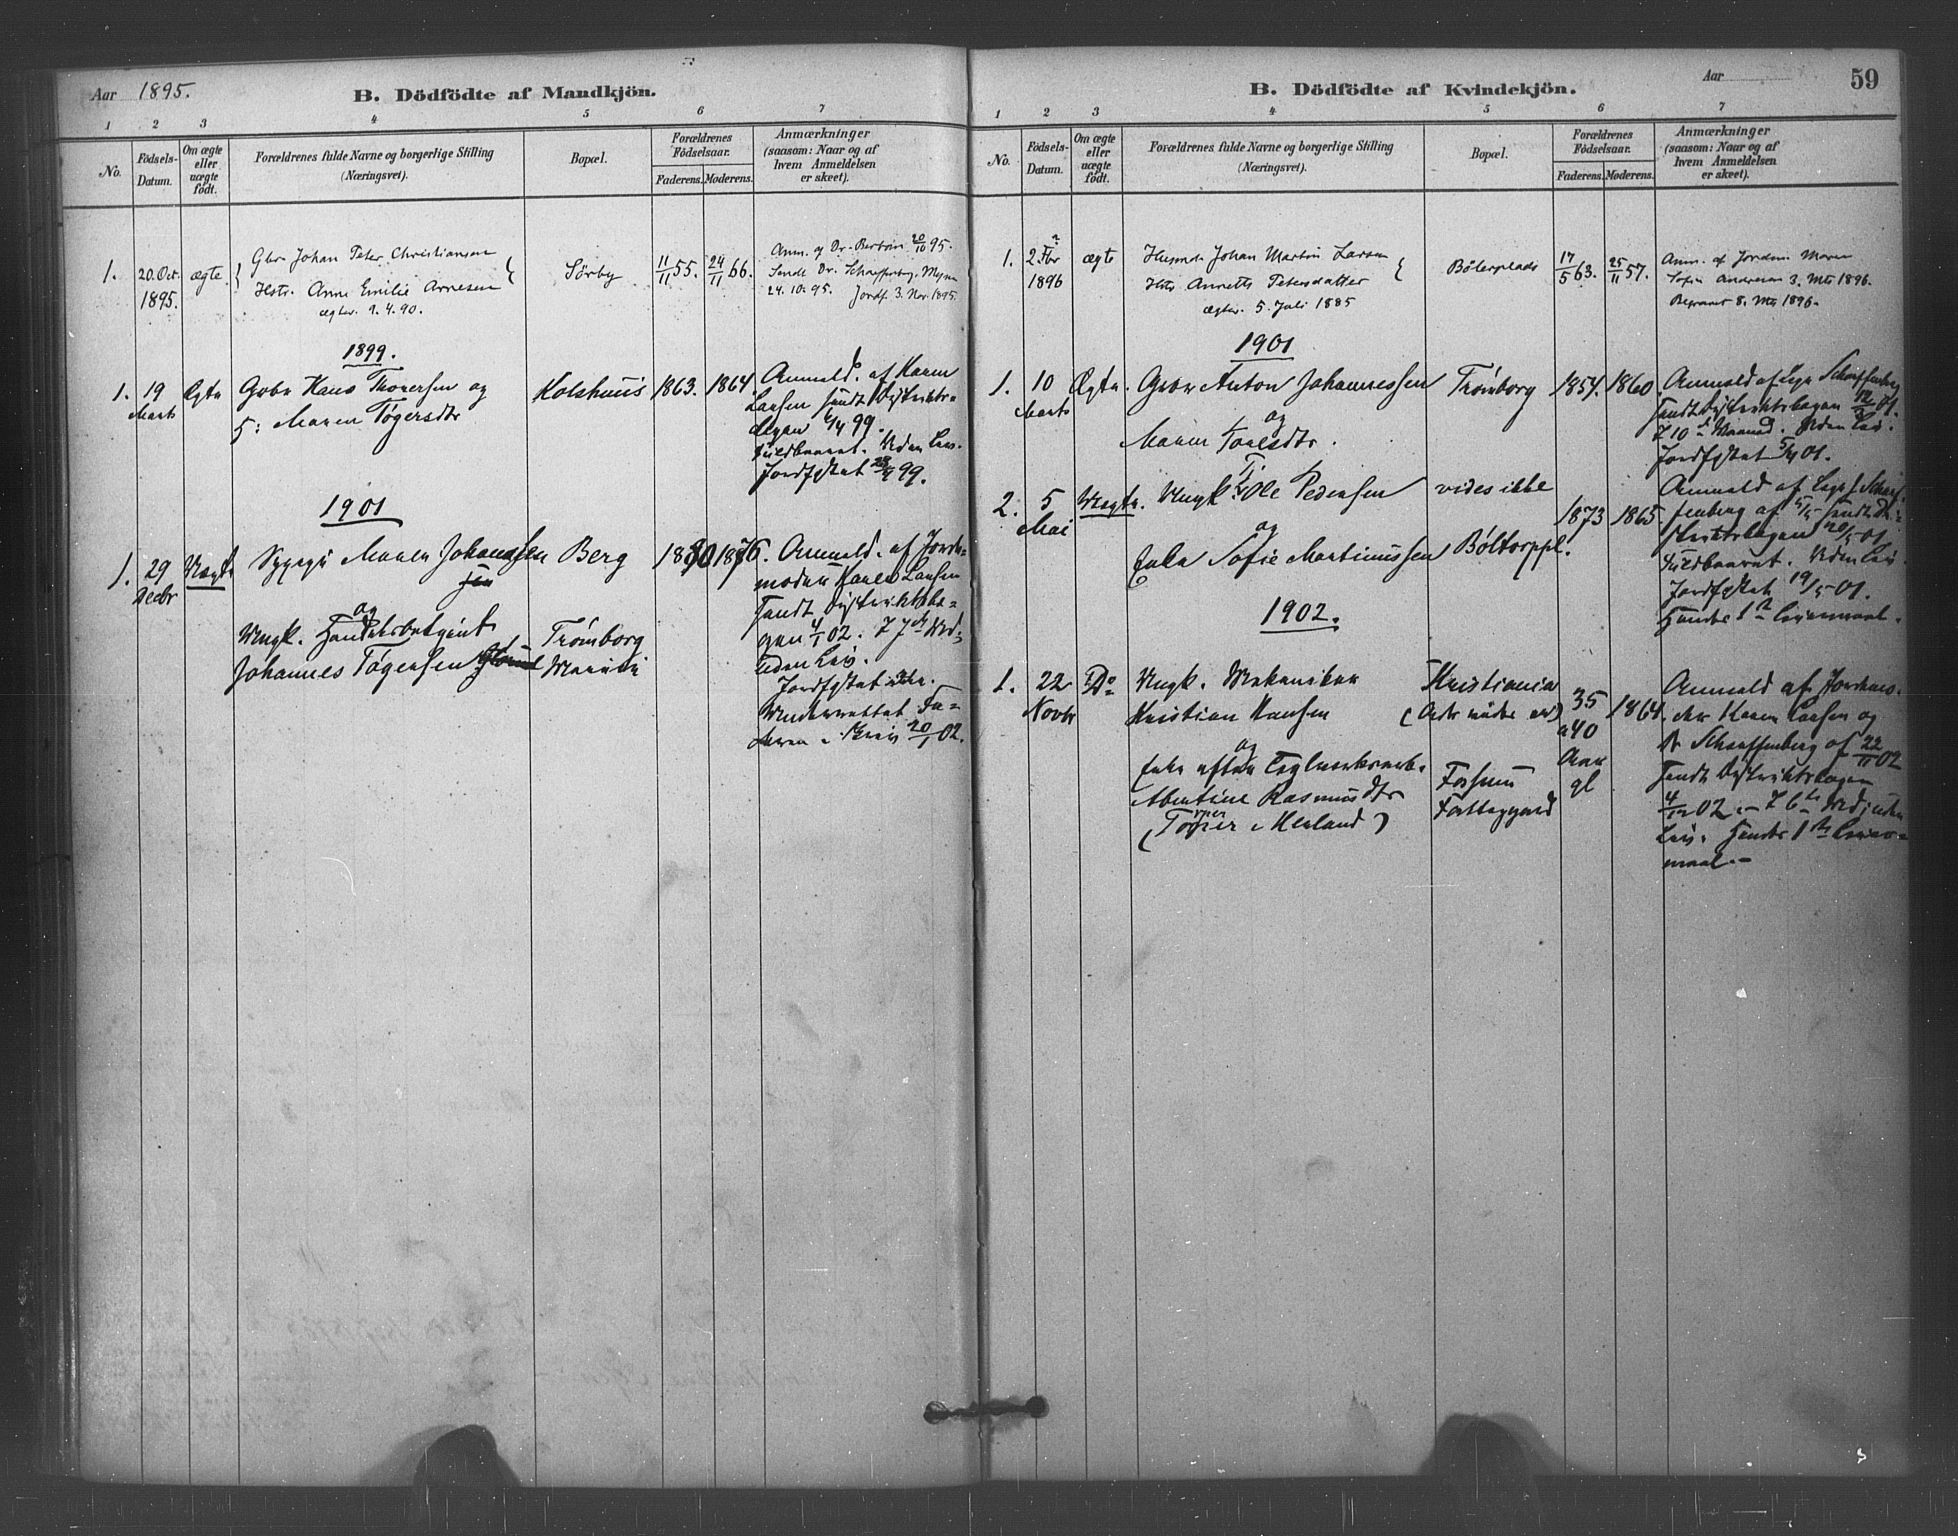 Aar 1895.
B. Dödfödte af Mandkjön.
1 2 3 4 5 6 7
No.
Födsels-
Datum.
Om ægte
eller
uægte
födt.
Forældrenes fulde Navne og borgerlige Stilling
(Næringsvei).
Bopæl.
Forældrenes
Födselsaar.
Faderens. Moderens.
Anmærkninger
(saasom: Naar og af
hvem Anmeldelsen
er skeet).
1. 20. Oct. 1895. ægte.
Gbr Johan Peter Christiansen
Hstr. Anne Emilie Arnesen
ægtev. 9.4.90.
Sörby
11/11 55. 24/11 66.
Anm. af Dr. 20/10 95.
Sendt Dr. Scharffenberg, Mysen
24.10.95. Jordf. 3. Nov. 1895.
1899.
1. 19 Marts Ægte
Grbr Hans Thoversen og
H: Maren Tøgersdtr
Kolshuus
1863. 1864.
Anmeld. af Karen
Larsen sendt Distrikts-
lægen 6/4 99.
Fuldbaaret. Uden Liv.
Jordfæstet 99.
1901
1. 29 Decbr Uægte
Sypige Maren Johannessen
og
Ungk. Handelsbetjent
Johannes Tøgersen
Berg
Trømborg
1880 1876.
Anmeld. af Jorde-
moder Karen Larsen
Sendt Distriktslæ-
gen 4/1 02. I 7de Md:
Uden Liv.
Jordfæstet
Underrettet Fa-
deren i Brev 20/1 02.
Aar
59
B. Dödfödte af Kvindekjön.
1 2 3 4 5 6 7
No.
Födsels-
Datum.
Om ægte
eller
uægte
födt.
Forældrenes fulde Navne og borgerlige Stilling
(Næringsvei).
Bopæl.
Forældrenes
Födselsaar.
Faderens. Moderens.
Anmærkninger
(saasom: Naar og af
hvem Anmeldelsen
er skeet).
1. 2 Fbr 1896 ægte
Husmd. Johan Martin Larsen
Hstr Annette Petersdatter
ægtev. 5. Juli 1885
Böterplads
17/5 63. 25/11 57.
Anm. af Jordm. Maren
Sofie Andresen 3. Mts 1896.
Begravet 8. Mts 1896.
1901
1. 10 Marts Ægte.
Grbr Anton Johannessen
og
Maren
Trømborg
1854. 1860.
Anmeld af Læge Scharffenberg
sendt Distriktslægen 12/3 01.
I 10de Maaned. Uden Liv.
Jordfæstet 5/4 01.
2. 5 Mai Uægte.
Ungk Ole Pedersen
og
Enke Sofie Martinussen
vides ikke
Böltorppl.
1873 1865.
Anmeld af Læge Scharf-
fenberg af 5/5 sendt Di-
striktslægen 20/5 01.
Fuldbaaret. Uden Liv.
Jordfæstet 19/5 01.
Hendes 1ste Leiermaal.
1902.
1. 22 Novbr Do
Ungk. Mekaniker
Kristian Hansen
og
Enke efter Teglverksarb.
Albertine Rasmusdtr
Kristiania
Forsum
Fattiggaard
35 a 40 Aar gl
1864.
Anmeld af Jordemo-
der Karen Larsen og
Dr Scharffenberg af 22/11 02
sendt Distriktslægen
4/12 02. I 6te Md; uden
Liv. Hendes 1ste Leier-
maal.